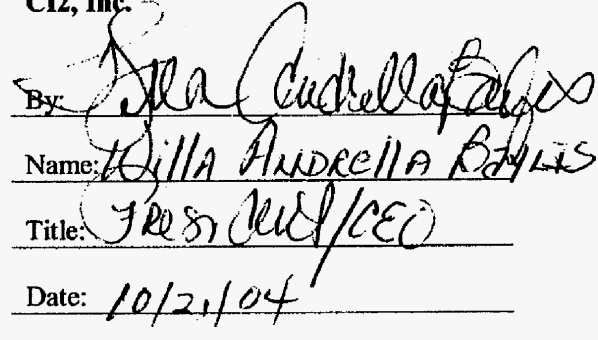 CI2, Inc.
By: Andrella
Name: Willa ANDRELLA BAYLIS
Title: President/CEO
Date: 10/21/04